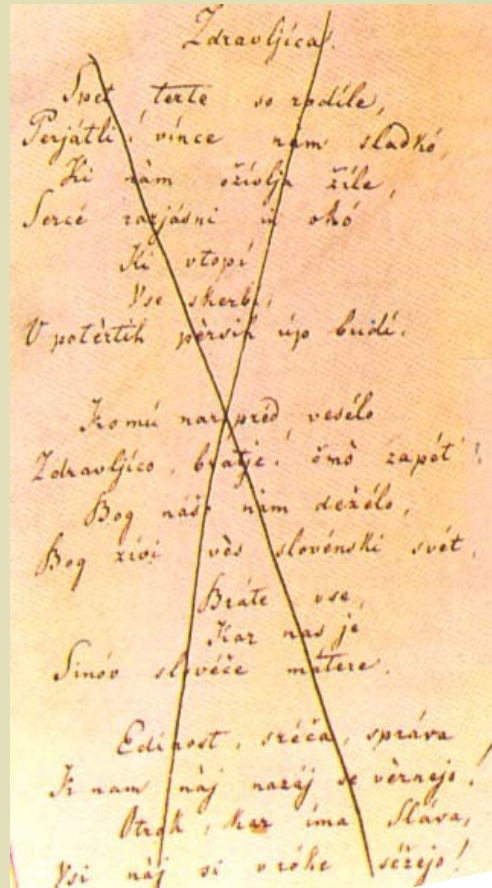 Zdravljíca.
Spet terte so rodíle,
Perjátli! vínce nàm sladkó,
Ki nàm ožívlja žíle,
Sercé razjásni in okó
Ki vtopí
Vse skerbí,
V potèrtih pèrsih úp budí.
Komú nar préd vesélo
Zdravljíco, brátje! čmò zapét'!
Bog náši nàm dežélo,
Bog živi vès slovénski svét,
Bráte vse,
Kar nas je
Sinóv slovéče mátere.
Edínost, sréča, správa
K nam nàj nazáj se vèrnejo!
Otrók, kar íma Sláva,
Vsi nàj si v róke séžejo!